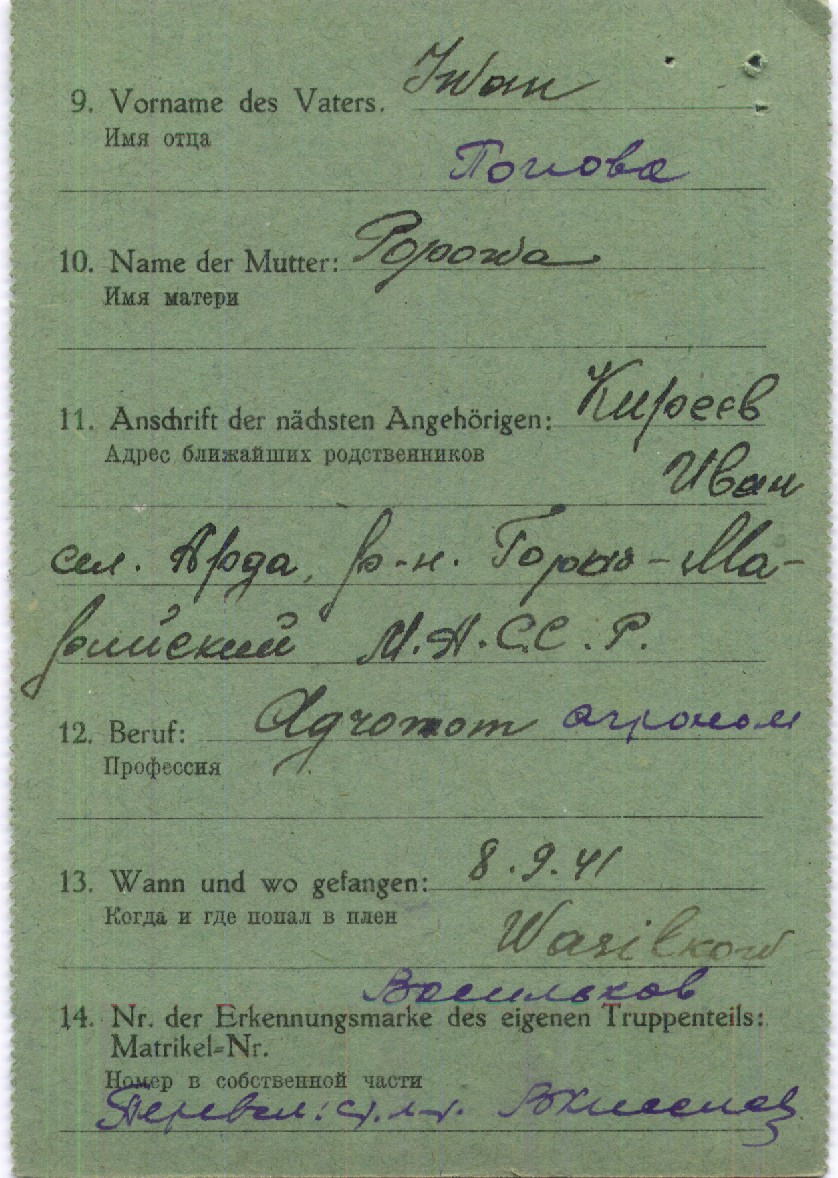 9. Vorname des Vaters. Iwan
Имя отца
Попова
10. Name der Mutter: Popowa
Имя матери
11. Anschrift der nächsten Angehörigen: Киреев
Адрес ближайших родственников
Иван
сел. Арда, р-н. Горно-Ма-
рийский М.А.С.С.Р.
12. Beruf: Agronom агроном
Профессия
13. Wann und wo gefangen: 8.9.41
Когда и где попал в плен
Wasilkow
Васильков
14. Nr. der Erkennungsmarke des eigenen Truppenteils:
Matrikel-Nr.
Номер в собственной части
Перевел: ст. л-т.